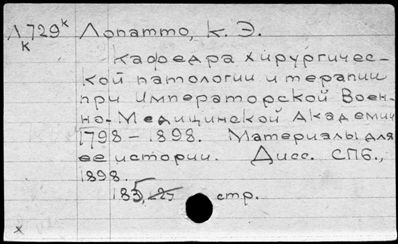 Л729к Лопатто, К. Э.
к
Кафедра хирургичес-
кой патологии и терапии
при Императорской Воен-
но-Медицинской Академии
1798 – 1898. Материалы для
ее истории. Дисс. СПб.,
1898.
185, стр.
x